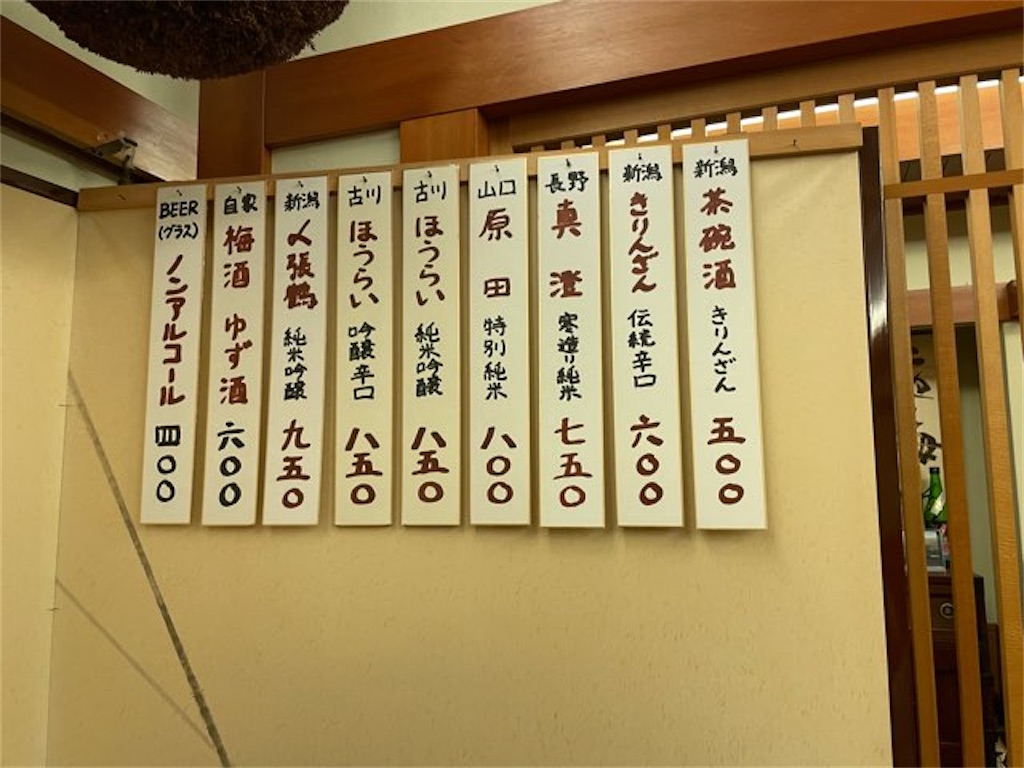 新潟 茶碗酒 きりんざん 五〇〇
新潟 きりんざん 伝統辛口 六〇〇
長野 真澄 寒造り純米 七五〇
山口 原田 特別純米 八〇〇
古川 ほうらい 純米吟醸 八五〇
古川 ほうらい 吟醸辛口 八五〇
新潟 〆張鶴 純米吟醸 九五〇
自家 梅酒 ゆず酒 六〇〇
BEER (グラス) ノンアルコール 四〇〇